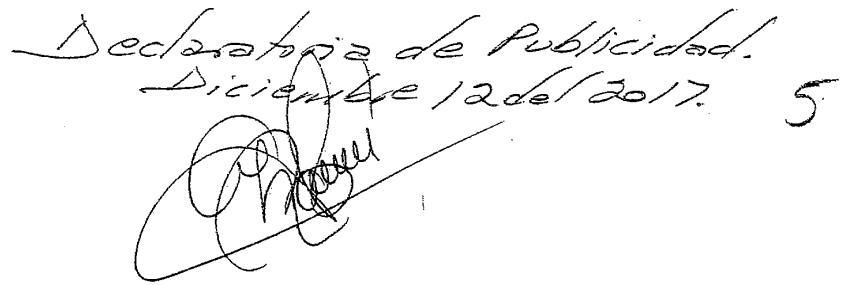 Declaratoria de Publicidad.
Diciembre 12 del 2017. 5